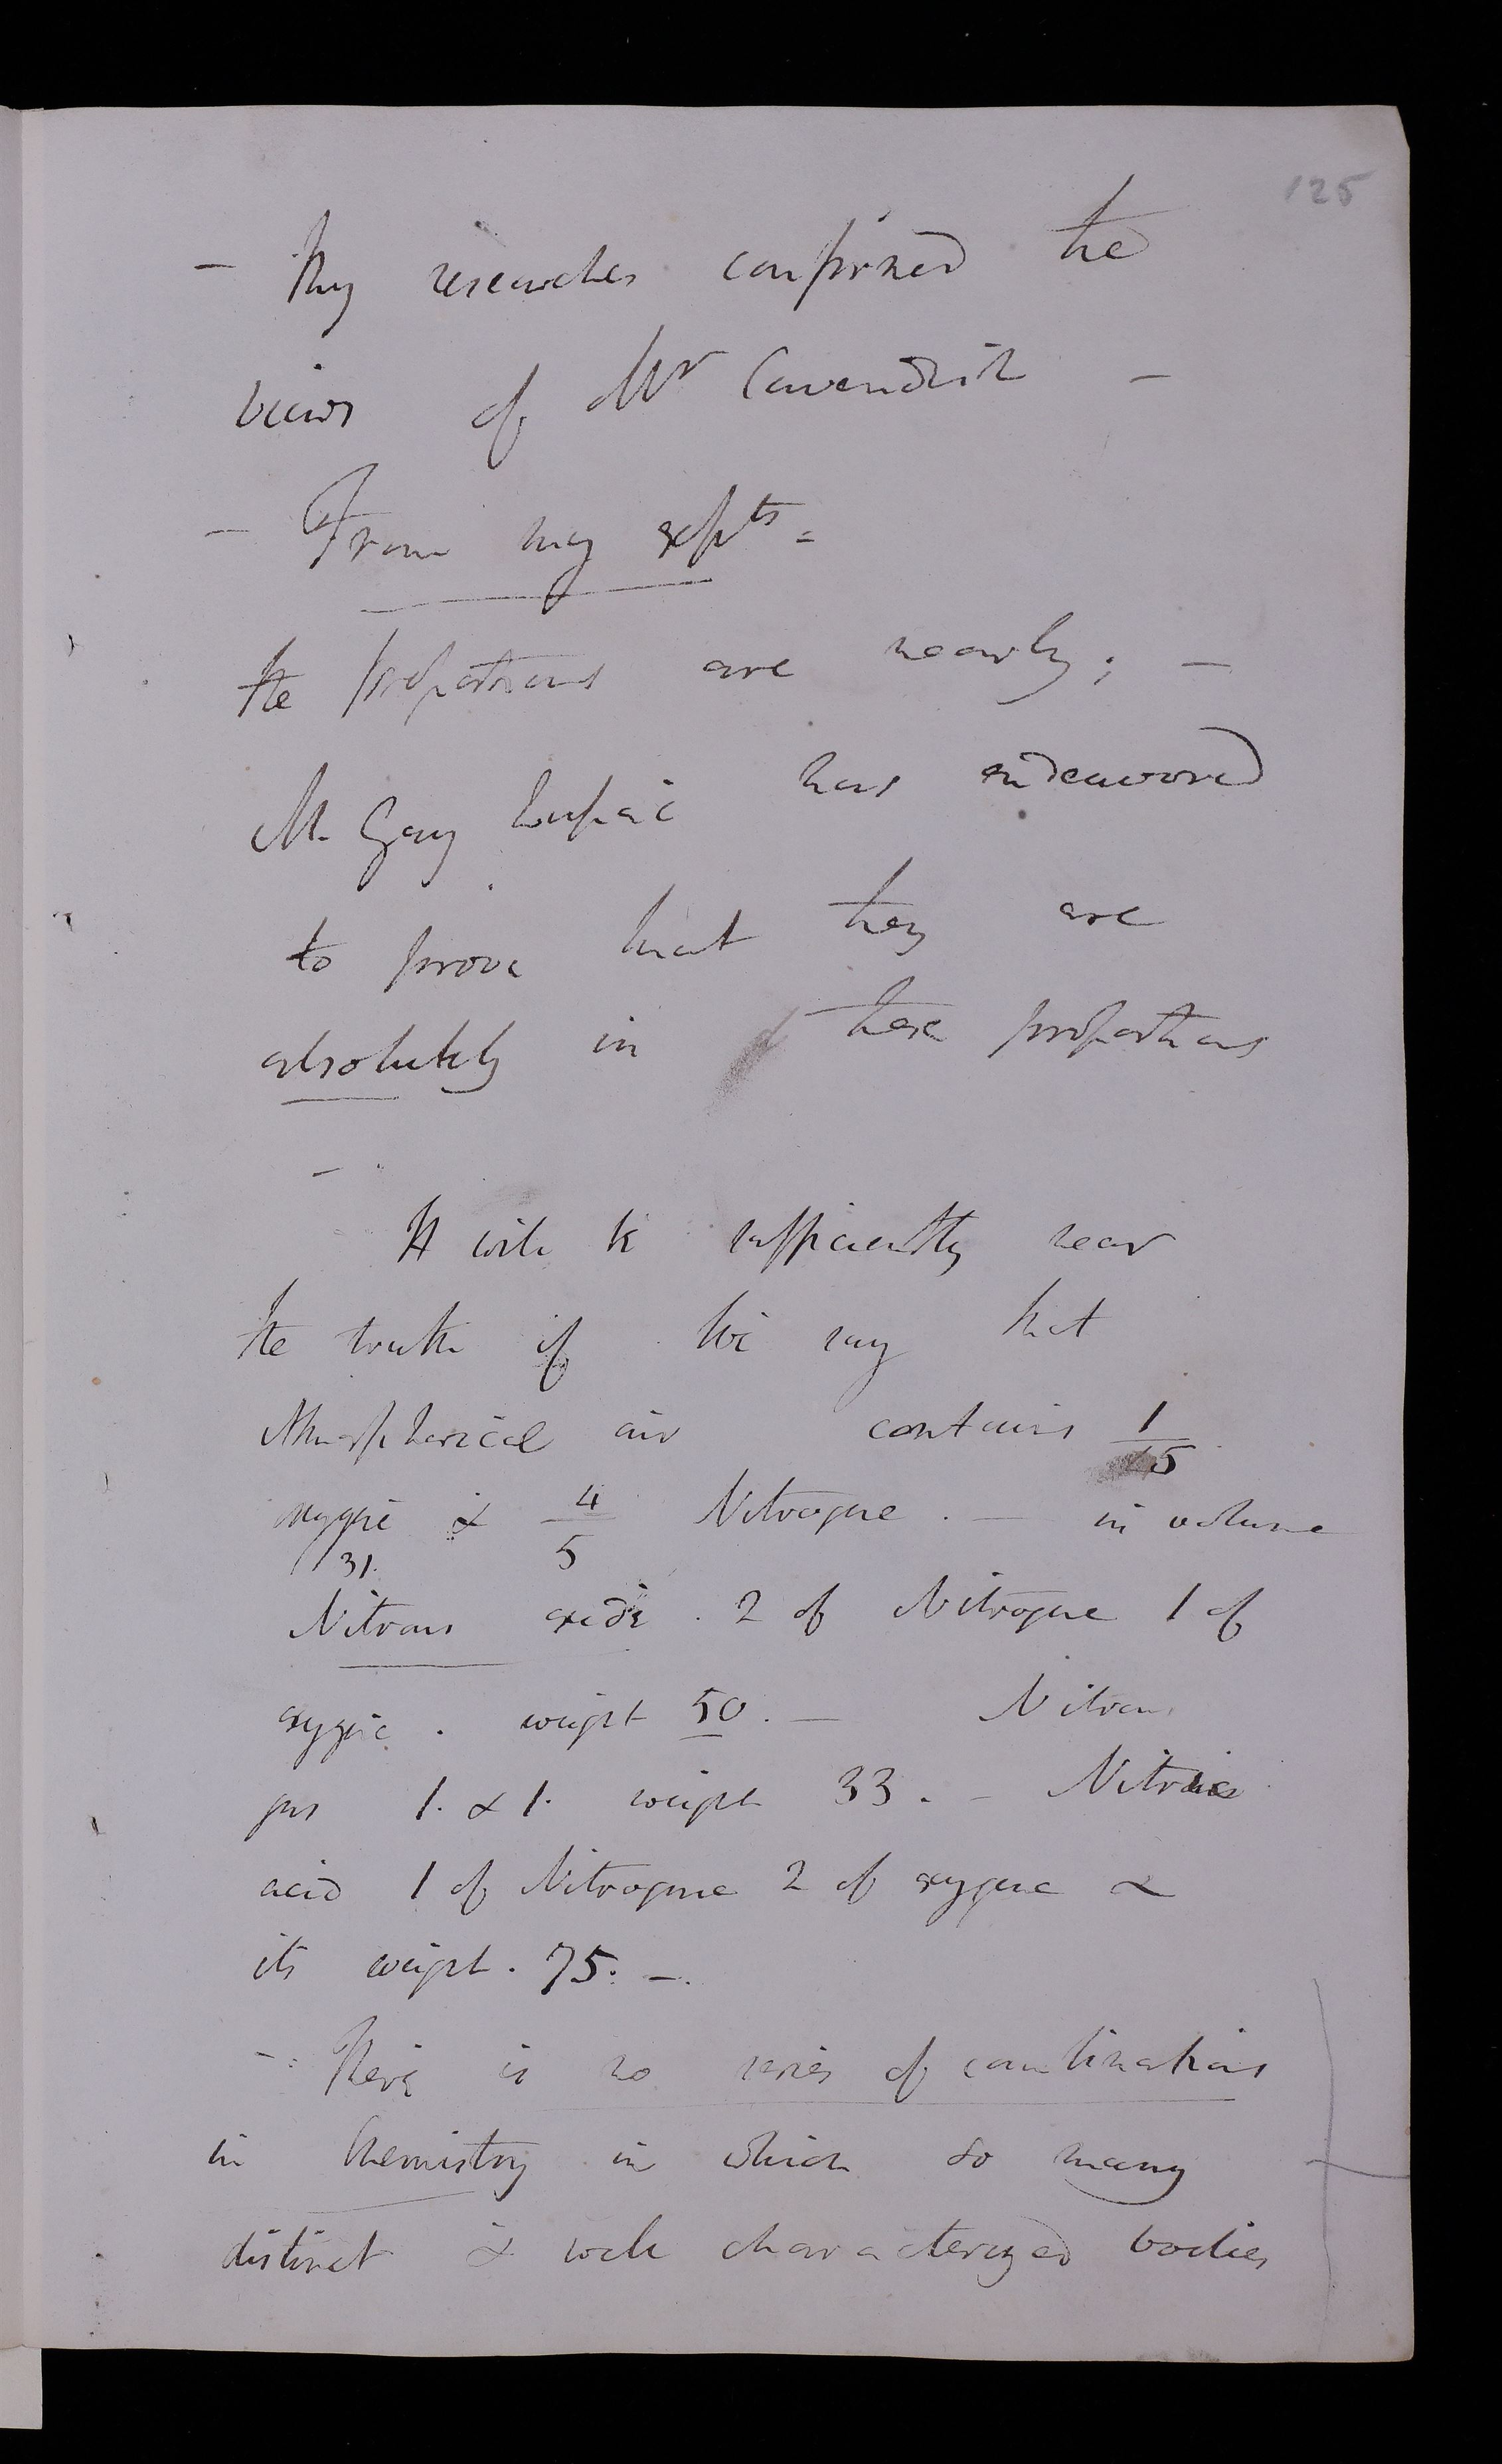 125
– My researches confirmed the
views of Mr Cavendish –
– From my expts =
the proportions are nearly; –
M. Gay Lussac has endeavored
to prove that they are
absolutely in these proportions
–
It will be sufficiently near
the truth if we say that
Atmospherical air contains 1/5
oxygene & 4/5 Nitrogene. – in volume
31.
Nitrous oxide. 2 of Nitrogene 1 of
oxygene. weight 50. – Nitrous
gas 1. & 1. weight 33. – Nitrous
acid 1 of Nitrogene 2 of oxygene &
its weight. 75. –.
– There is no series of combinations
in Chemistry in which so many
distinct & well characterized bodies